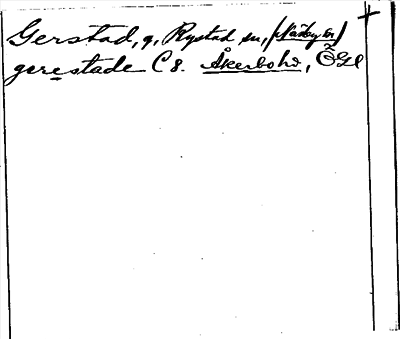 Gerstad, g, Rystad sn, (Näsby tn)
gerestade C 8. Åkerbohd, ÖGl